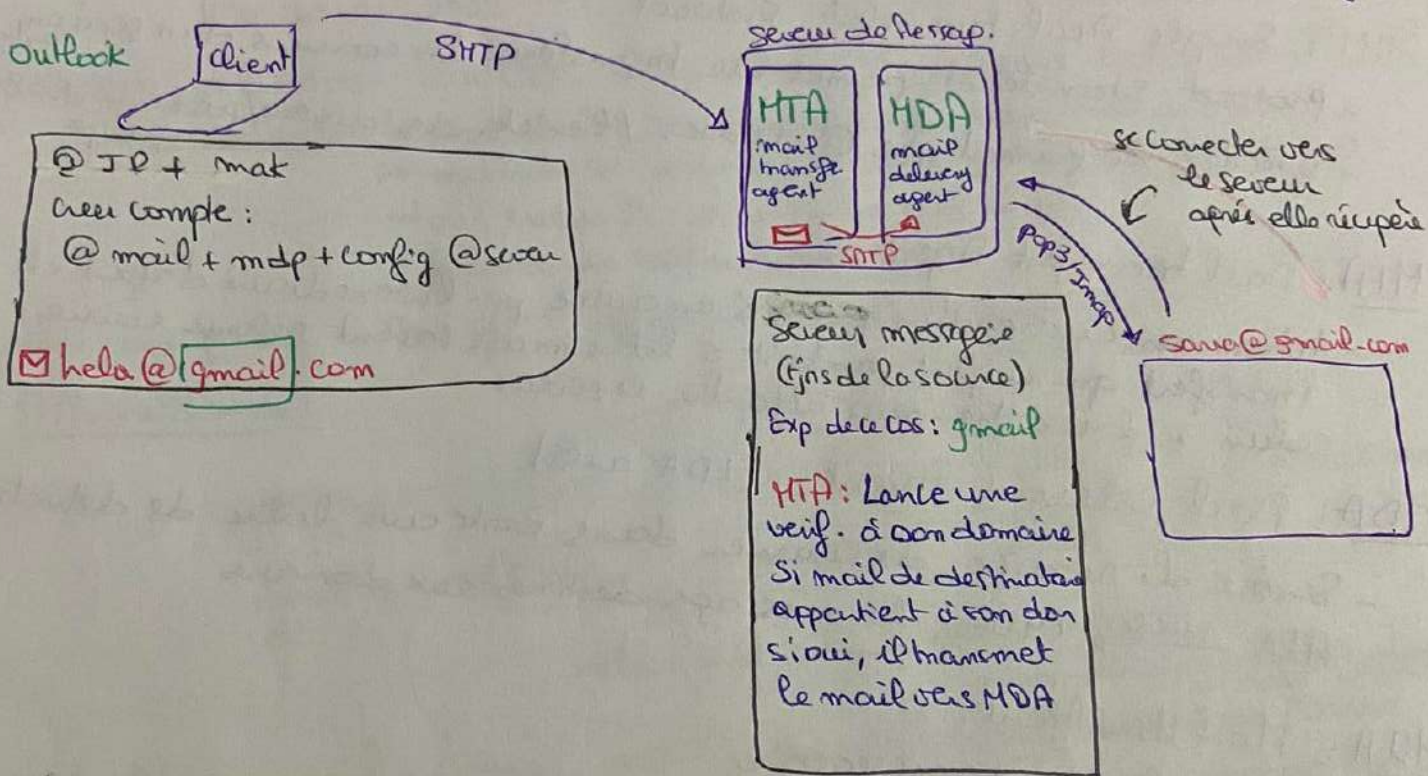 Outlook
client
SMTP
@ IP + mak
creer compte :
@ mail + mdp + config @ serveur
hela@gmail.com
serveur de Messag.
MTA
mail
transfer
agent
MDA
mail
delevery
agent
SMTP
se connecter vers
le serveur
aprés elle récupère
Pop3/Imap
sarra@gmail.com
Serveur messagerie
(tjrs de la source)
Exp de ce cas : gmail
MTA : Lance une
verif. à son domaine
Si mail de destinataire
appartient à son dom
si oui, il transmet
le mail vers MDA